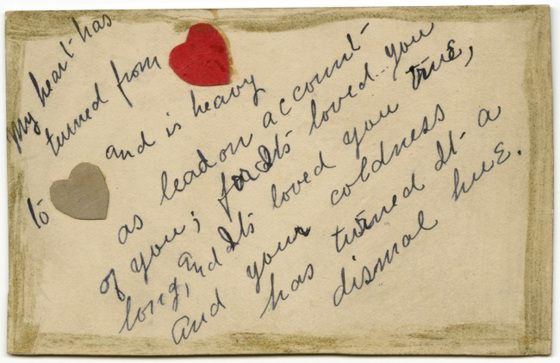 My heart has
turned from
to
and is heavy
as lead on account
of you; for Its loved you
long, and Its loved you true,
And your coldness
has turned It a
dismal hue.